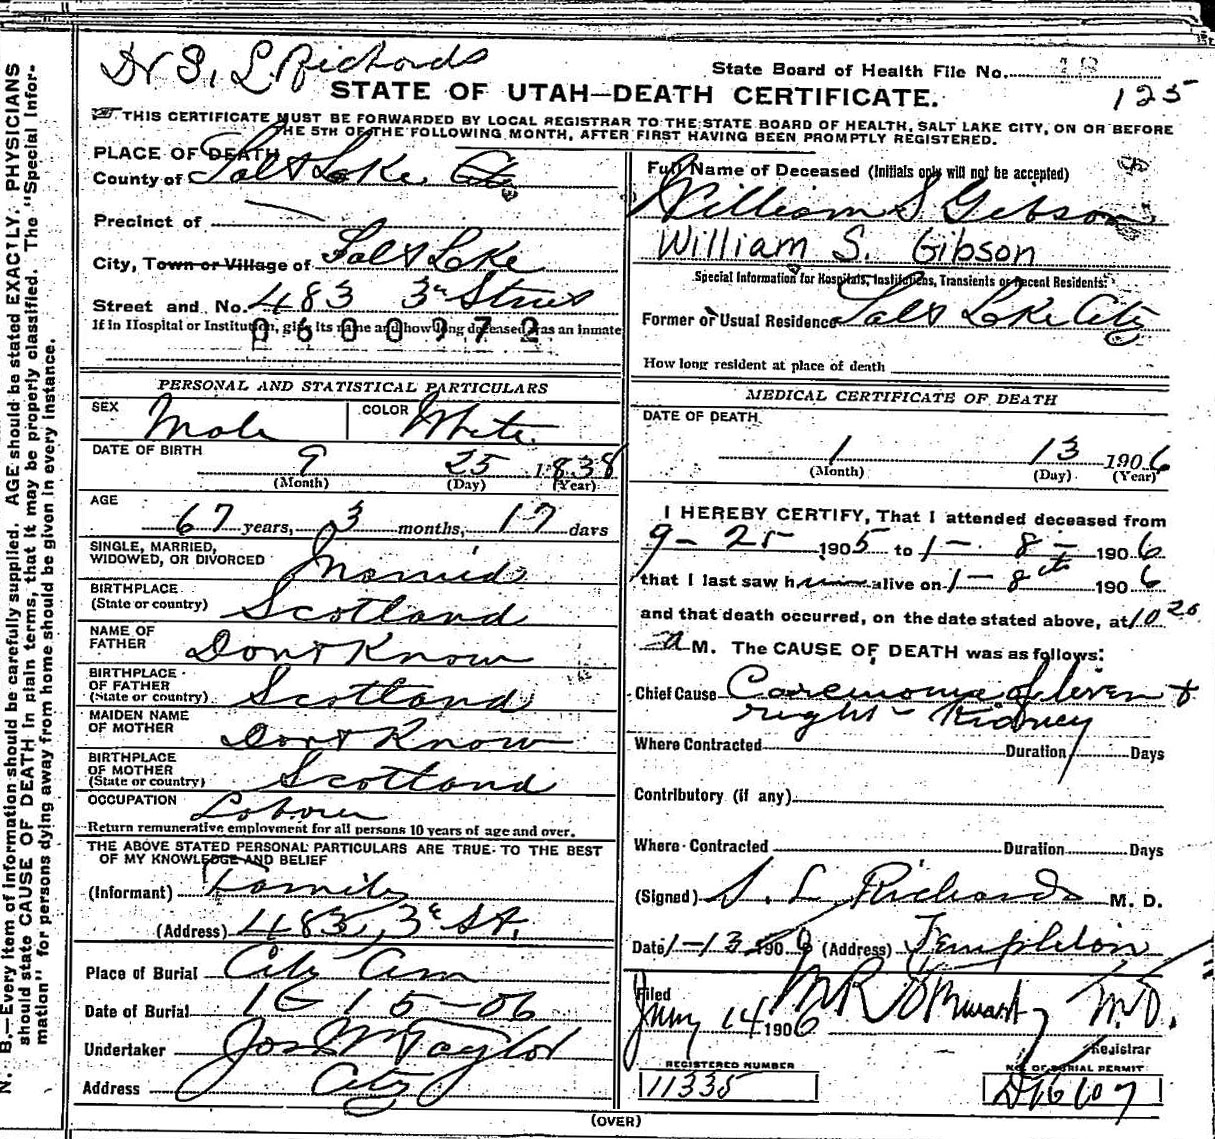 Dr S. L. Richards
State Board of Health File No.
STATE OF UTAH—DEATH CERTIFICATE.
125
THIS CERTIFICATE MUST BE FORWARDED BY LOCAL REGISTRAR TO THE STATE BOARD OF HEALTH, SALT LAKE CITY, ON OR BEFORE
THE 5TH OF THE FOLLOWING MONTH, AFTER FIRST HAVING BEEN PROMPTLY REGISTERED.
PLACE OF DEATH
County of Salt Lake
Precinct of
City, Town or Village of Salt Lake
Street and No. 483 3rd Street
If in Hospital or Institution, give its name and how long deceased was an inmate
0600972
PERSONAL AND STATISTICAL PARTICULARS
SEX Male COLOR White
DATE OF BIRTH
9 25 1838
(Month) (Day) (Year)
AGE
67 years, 3 months, 17 days
SINGLE, MARRIED,
WIDOWED, OR DIVORCED Married
BIRTHPLACE
(State or country) Scotland
NAME OF
FATHER Dont Know
BIRTHPLACE
OF FATHER
(State or country) Scotland
MAIDEN NAME
OF MOTHER Dont Know
BIRTHPLACE
OF MOTHER
(State or country) Scotland
OCCUPATION Laborer
Return remunerative employment for all persons 10 years of age and over.
THE ABOVE STATED PERSONAL PARTICULARS ARE TRUE TO THE BEST
OF MY KNOWLEDGE AND BELIEF
(Informant) Family
(Address) 483, 3d St.
Place of Burial City Cem
Date of Burial 15-06
Undertaker Jos Wm Taylor
Address City
Full Name of Deceased (Initials only will not be accepted)
William S Gibson
William S. Gibson
Special Information for Hospitals, Institutions, Transients or Recent Residents:
Former or Usual Residence Salt Lake City
How long resident at place of death
MEDICAL CERTIFICATE OF DEATH
DATE OF DEATH
1 13 1906
(Month) (Day) (Year)
I HEREBY CERTIFY, That I attended deceased from
9-25 1905 to 1-8- 1906
that I last saw him alive on 1-8th 1906
and that death occurred, on the date stated above, at 10 20
a M. The CAUSE OF DEATH was as follows:
Chief Cause Carcinoma of liver +
right Kidney
Where Contracted Duration Days
Contributory (if any)
Where Contracted Duration Days
(Signed) S. L. Richards M. D.
Date 1-13 1906 (Address) Templeton
Filed
Jany 14 1906 M.D.
Registrar
REGISTERED NUMBER
11335
NO. OF BURIAL PERMIT
D16107
(OVER)
N. B.—Every item of information should be carefully supplied. AGE should be stated EXACTLY. PHYSICIANS
should state CAUSE OF DEATH in plain terms, that it may be properly classified. The "Special Infor-
mation" for persons dying away from home should be given in every instance.